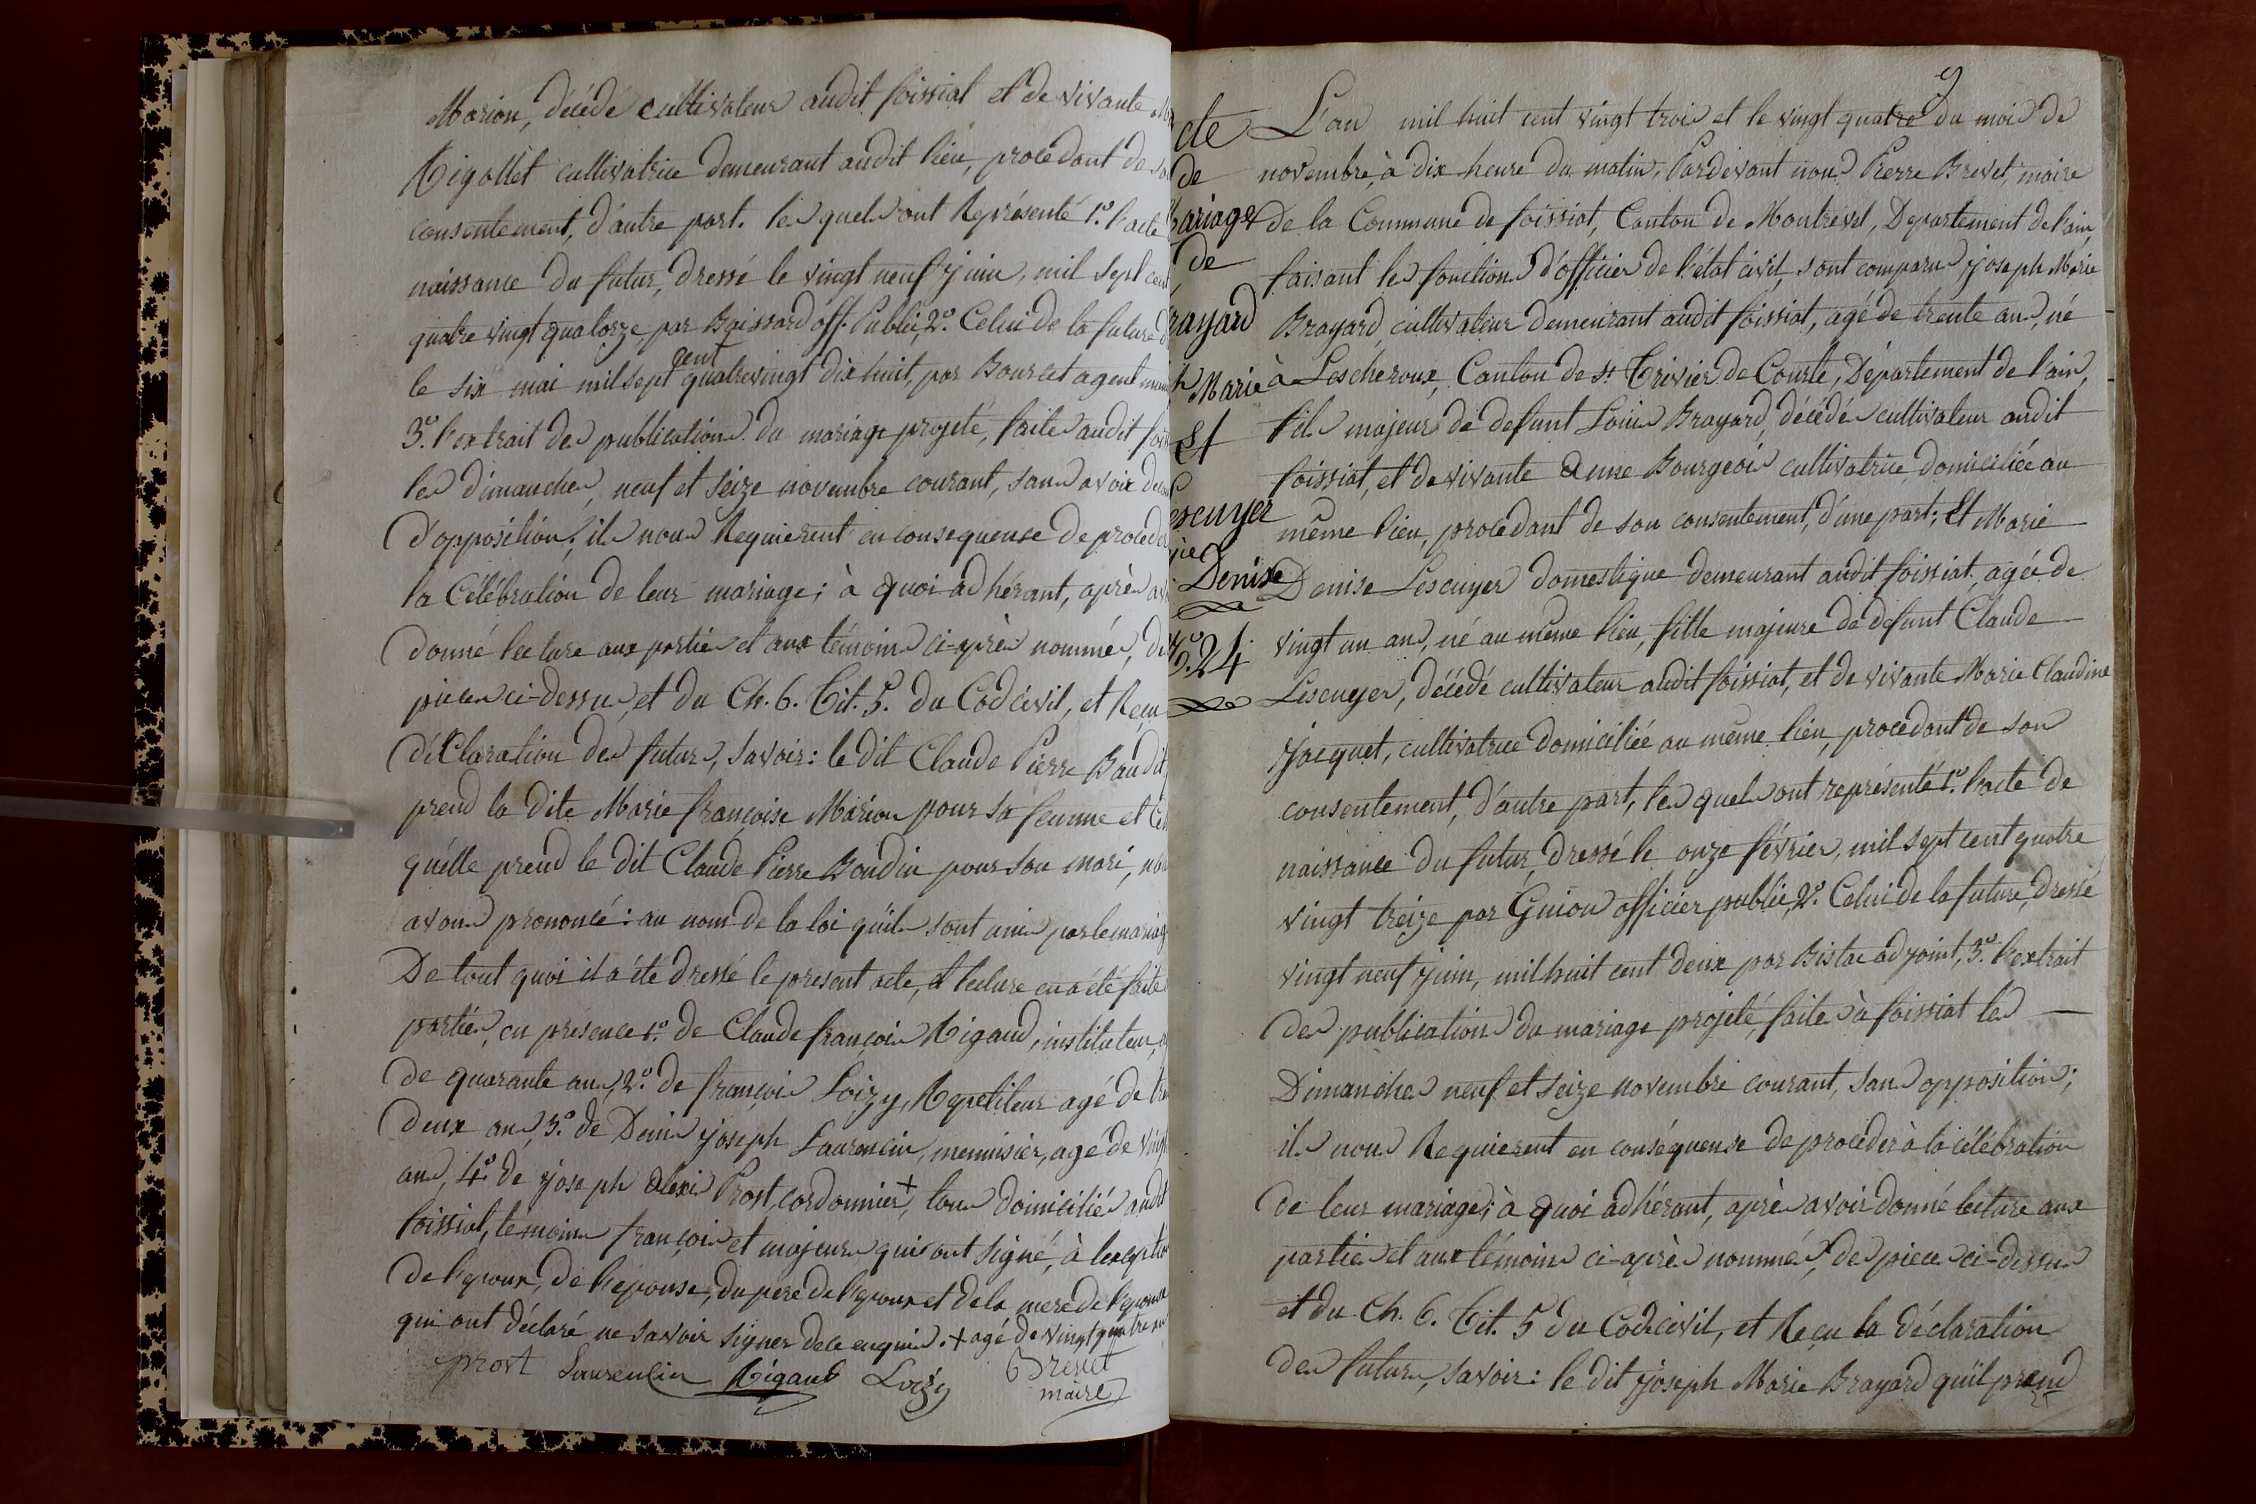 Marion, décédé cultivateur audit foissiat et de vivante
Rigollet cultivatrice demeurant audit lieu, procédant de
consentement, d'autre part. les quels ont Représenté 1º. l'acte
naissance du futur, dressé le vingt neuf juin, mil sept cent
quatre vingt quatorze, par Boissard off. Public, 2º. Celui de la future
cent
le six mai mil sept quatrevingt dix huit, par Bourcet agent
3º. l'extrait des publications du mariage projeté, faites audit
les dimanches, neuf et seize novembre courant, sans avoir
d'opposition; ils nous Requierent en consequense de
la Célébration de leur mariage; à quoi adhérant, après
donné lecture aux parties et aux témoins ci-après nommés,
pieces ci-dessus, et du Ch. 6. Tit. 5. du Cod civil, et Reçu
déClaration des futurs, savoir: le dit Claude Pierre
prend la dite Marie françoise Marion pour sa femme et
qu'elle prend le dit Claude Pierre Boudin pour son mari,
avons prononcé: au nom de la loi qu'ils sont unis par le
De tout quoi il a été dressé le present acte, et lecture en a été faite
parties, en presence 1º. de Claude françois Rigaud, instituteur,
de quarante ans, 2º. de françois Loizy, Repetiteur agé de
deux ans, 3º. de Denis joseph Laurencin, menuisier, agé de
ans, 4º. de joseph alexis Prost, cordonnier +, tous domiciliés
foissiat, témoins françois et majeurs qui ont signé, à
de l'epoux, de l'epouse, du pere de l'epoux et de la mere de l'epouse
qui ont déclaré ne savoir signer de ce enquis. + agé de vingt quatre
prost Laurencin Rigaud Loizy Brevet
maire
9
de
Mariage
de
Brayard
Marie
Et
Lescuyer
Denise
Nº. 24
L'an mil huit cent vingt trois et le vingt quatre du mois de
novembre, à dix heures du matin, Pardevant nous Pierre Brevet, maire
de la Commune de foissiat, Canton de Montrevel, Departement de l'ain,
faisant les fonctions d'officier de l'état civil, sont comparus joseph Marie
Brayard, cultivateur demeurant audit foissiat, agé de trente ans, né
à Lescheroux, Canton de St Trivier de Courte, Département de l'ain,
fils majeur de defunt Louis Brayard, décédé cultivateur audit
foissiat, et de vivante anne Bourgeois cultivatrice domiciliée au
même lieu, procédant de son consentement, d'une part; Et Marie
Denise Lescuyer domestique demeurant audit foissiat, agée de
vingt un ans, né au même lieu, fille majeure de defunt Claude
Lescuyer, décédé cultivateur audit foissiat, et de vivante Marie Claudine
Jacquet, cultivatrice domiciliée au même lieu, procédant de son
consentement, d'autre part, les quels ont représenté 1º. l'acte de
naissance du futur, dressé le onze février, mil sept cent quatre
vingt treize par Guion officier public, 2º. Celui de la future, dressé
vingt neuf juin, mil huit cent deux par Bistac adjoint, 3º. l'extrait
des publications du mariage projeté, faites à foissiat les
Dimanches neuf et seize novembre courant, sans opposition;
ils nous Requierent en conséquense de procéder à la célébration
de leur mariage; à quoi adhérant, après avoir donné lecture aux
parties et aux témoins ci-après nommés, des pieces ci-dessus
et du Ch. 6. Tit. 5 du Code civil, et Reçu la déclaration
des futurs, savoir: le dit joseph Marie Brayard qu'il prend